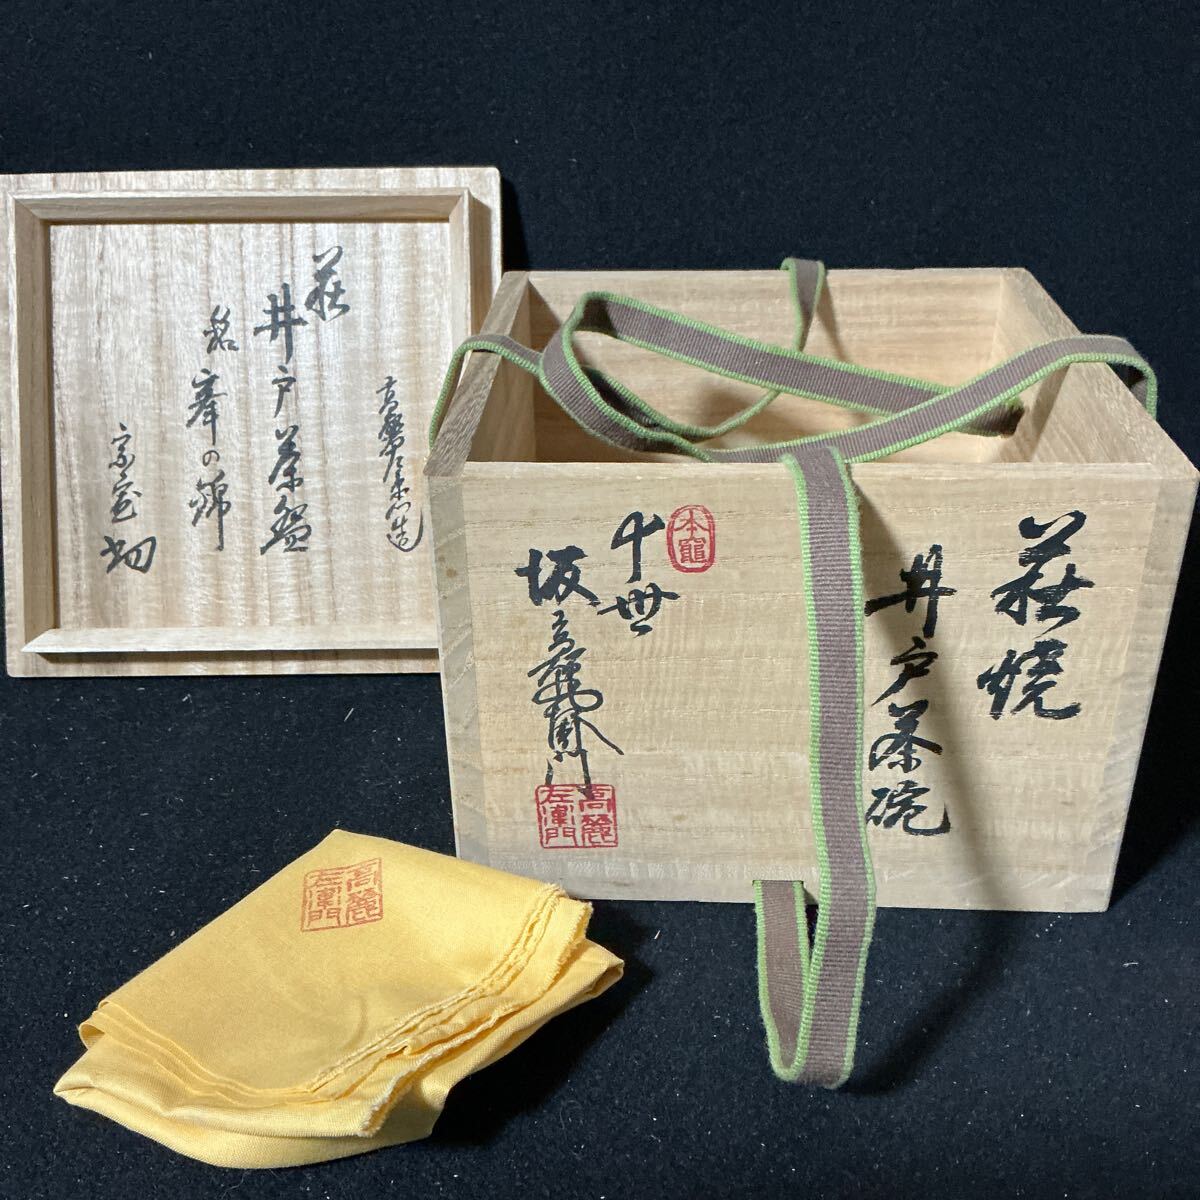 高麗左衛門造
萩
井戸茶盌
銘
峯の錦
宗室
萩焼
井戸茶碗
本竈
十世
坂高麗左衛門
高麗左衛門
高麗左衛門